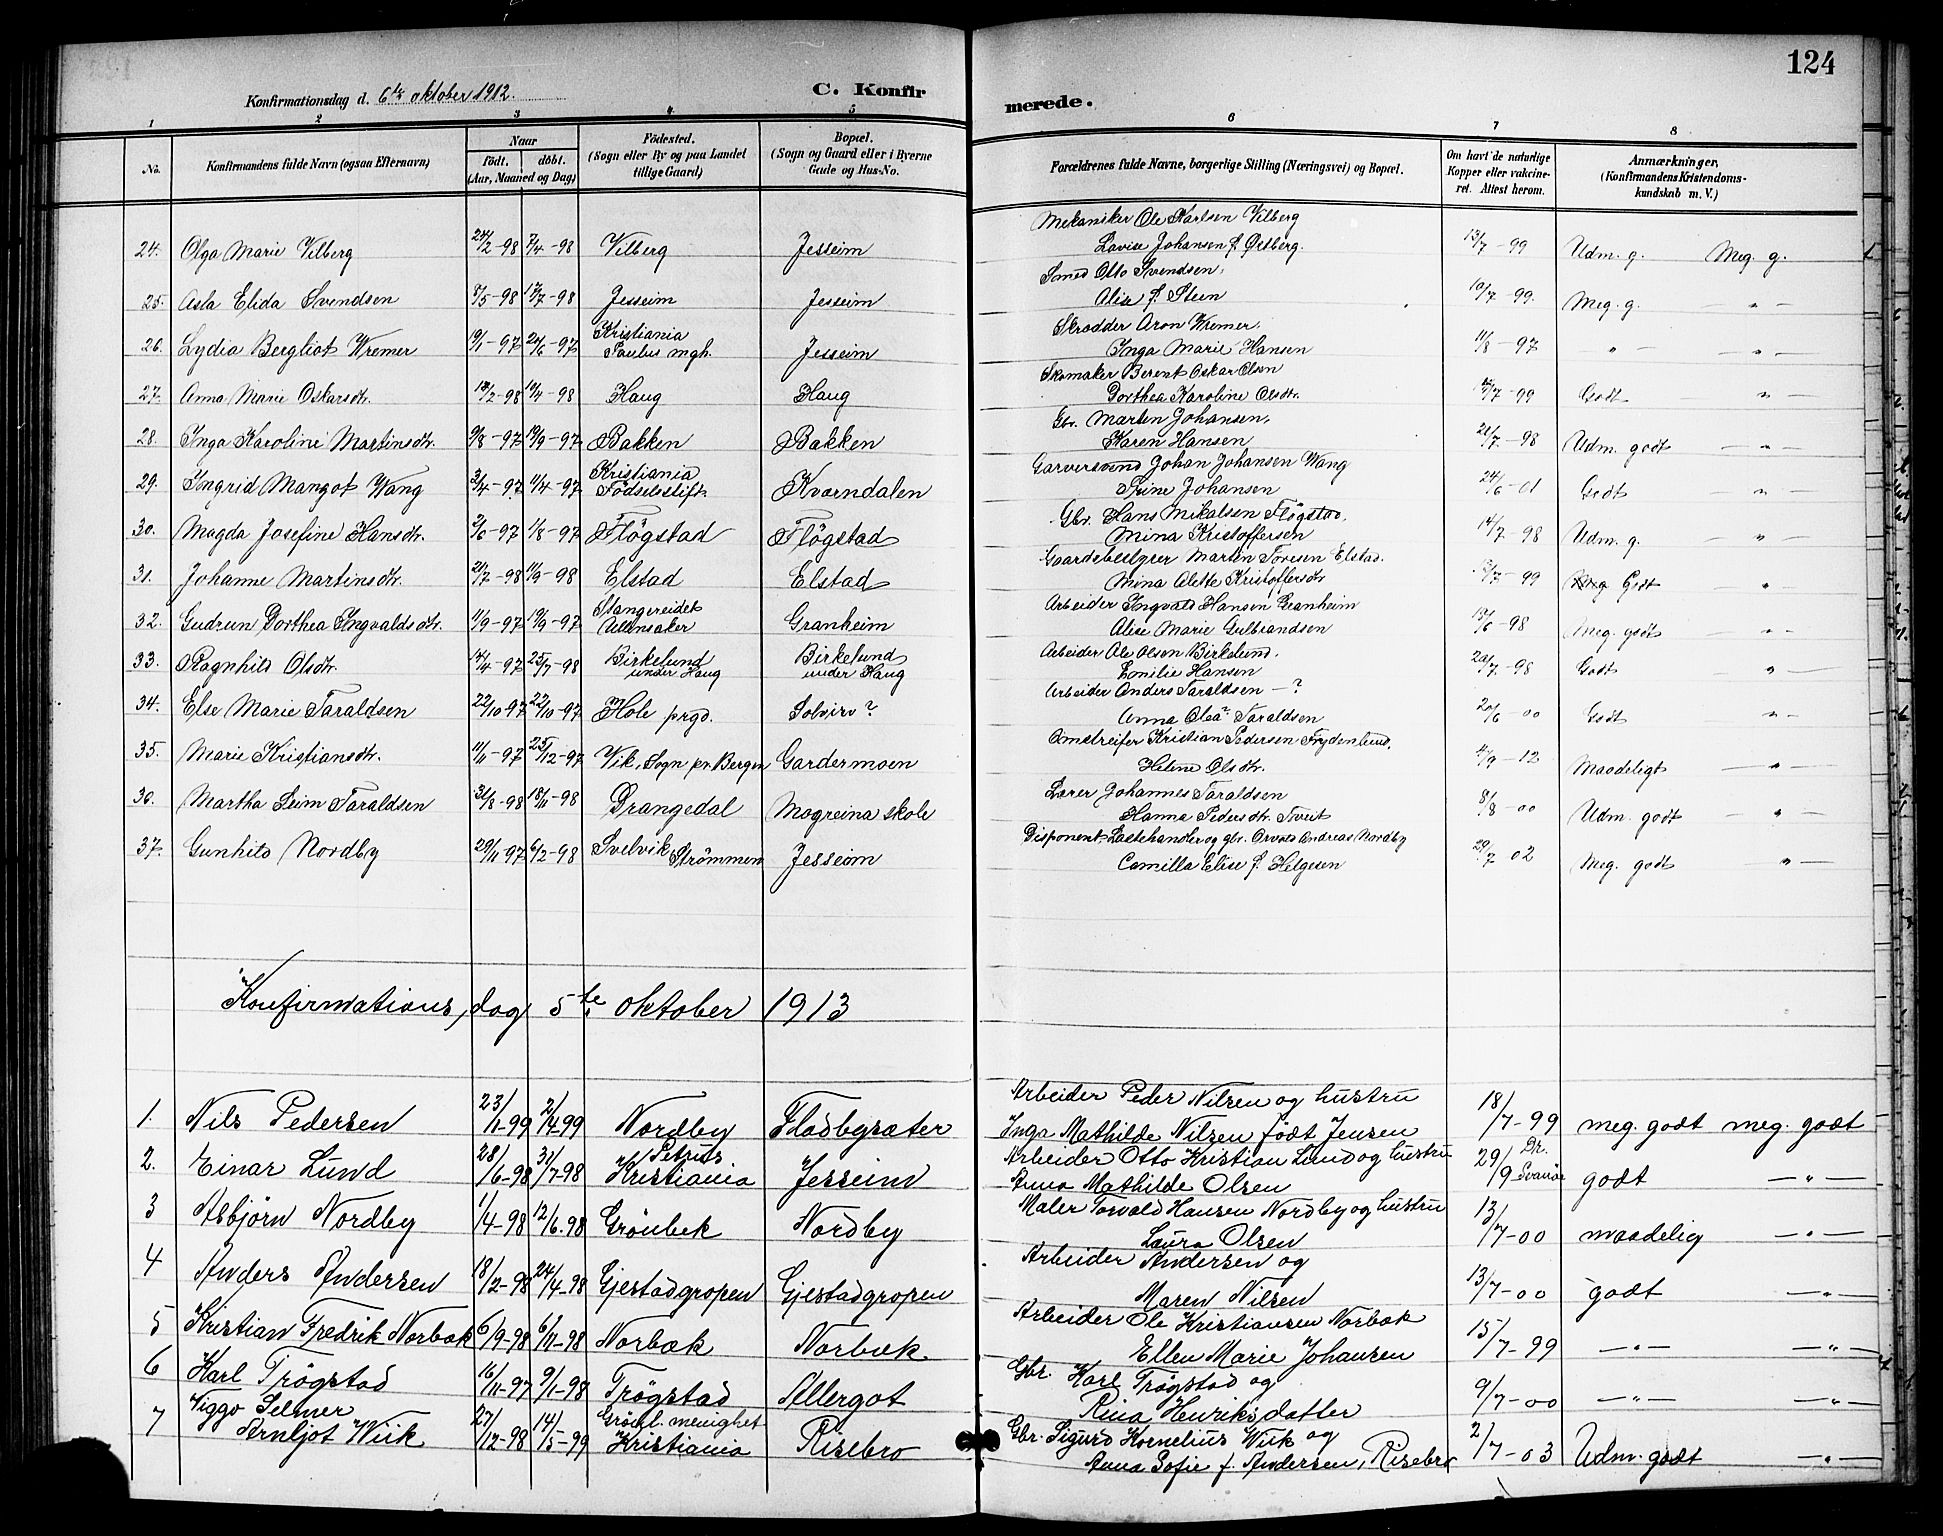 124
Konfirmationsdag d. 6te oktober 1912.
C. Konfir
merede.
1 2 3 4 5 6 7 8
No. Konfirmandens fulde Navn (ogsaa Efternavn) Naar født, døbt. (Aar, Maaned og Dag) Fødested. (Sogn eller By og paa Landet tillige Gaard) Bopæl. (Sogn og Gaard eller i Byerne Gade og Hus-No.) Forældrenes fulde Navne, borgerlige Stilling (Næringsvei) og Bopæl. Om havt de naturlige Kopper eller vakcineret. Attest herom. Anmærkninger, (Konfirmandens Kristendomskundskab m. V.)
Mekaniker Ole Karlsen Vilberg
24. Olga Marie Vilberg 24/2-98 7/4-98 Vilberg Jesseim Lovise Johansen f. Østberg. 13/7-99 Udm. g. Meg. g.
Smed Otto Svendsen,
25. Asla Elida Svendsen 8/5-98 17/7-98 Jesseim Jesseim Alise f. Stein 10/7-99. Meg. g. — " —
Kristiania Skrædder Aron Wremer,
26. Lydia Bergliot Wremer 19/1-97 20/6-97 Paulus mgh. Jesseim Inga Marie Hansen 11/8-97 " — — " —
Skomaker Berent Oskar Olsen
27. Anna Marie Oskarsdtr. 18/2-98 10/4-98 Haug Haug Dorthea Karoline Olsdtr. /7-99 Godt — " —
Gbr. Martin Johansen,
28. Inga Karoline Martinsdtr. 9/8-97 19/9-97 Bakken Bakken Karen Hansen 21/7-98 Udm. godt — " —
Kristiania Garversvend Johan Johansen Wang
29. Ingrid Margot Wang 3/4-97 11/4-97 Fødselsstift. Kværndalen Trine Johansen 24/6-01 Godt — " —
Gbr. Hans Mikalsen Fløgstad,
30. Magda Josefine Hansdtr. 2/6-97 1/8-97 Fløgstad Fløgstad Mina Kristoffersen 14/7-98 Udm. g. — " —
Gaardsbestyrer Martin Toresen Elstad.
31. Johanne Martinsdtr. 21/7-98 11/9-98 Elstad Elstad Mina Olette Kristoffersdtr /7-99 Godt "
Stangereidet Arbeider Ingvald Hansen Granheim
32. Gudrun Dorthea Ingvaldsdtr. 11/9-97 19/9-97 Ullensaker Granheim Alise Marie Gulbrandsen 15/6-98 Meg. godt — " —
Birkelund Birkelund Arbeider Ole Olsen Birkelund.
33. Ragnhild Olsdtr. 14/4-97 25/7-98 under Haug under Haug Emilie Hansen 20/7-98 Godt — " —
Arbeider Anders Taraldsen — ?
34. Else Marie Taraldsen 22/10-97 22/10-97 Hole prgd. Solviro? Anna Olea? Taraldsen 20/6-00 Godt " —
Omstreifer Kristian Pedersen Frydenlund,
35. Marie Kristiansdtr. 11/11-97 25/12-97 Vik, Sogn pr. Bergen Gardermoen Helene Olsdtr. 4/9-12 Maadeligt — " —
Lærer Johannes Taraldsen
36. Martha Seim Taraldsen 31/8-98 18/11-98 Drangedal Mogreina skole Hanna Pedersdtr. Tveit 8/8-00 Udm. godt — " —
Disponent, Lastehandler og gbr. Orvald Andreas Nordby
37. Gunhild Nordby 29/11-97 6/2-98 Svelvik, Strömmen Jesseim Camilla Elise f. Helgesen 29/7 02 Meg. godt " —
Konfirmations,dag 5te oktober 1913
Arbeider Peder Nilsen og hustru
1. Nils Pedersen 23/1-99 2/4-99 Nordby Flodbysæter Inga Mathilde Nilsen født Jensen 18/7-99 meg. godt meg. godt
Petrus Arbeider Otto Kristian Lund og hustru Dr.
2. Einar Lund 28/6-98 31/7-98 Kristiania Jesseim Anna Mathilde Olsen 29/9 Svanøe godt — " —
Maler Torvald Hansen Nordby og hustru
3 Asbjörn Nordby 1/4-98 12/6-98 Grönbek Nordby Laura Olsen 13/7-00 maadelig — " —
Arbeider Andersen og
4 Anders Andersen 18/2-98 24/4-98 Gjestadgropen Gjestadgropen Maren Nilsen 13/7-00 godt — " —
Arbeider Ole Kristiansen Norbæk
5 Kristian Fredrik Norbæk 6/9-98 6/11-98 Norbæk Norbæk Ellen Marie Johansen 15/7-99 — " — — " —
Gbr. Karl Trögstad og
6 Karl Trögstad 16/11-97 9/1-98 Trögstad Allergot Rina Henriksdatter 9/7-00 — " — — " —
Viggo Selmer Grönl. menighet Gbr. Sigurd Kornelius Wiik og
7 Arnljot Wiik 27/12-98 14/5-99 Kristiania Risebro Anna Sofie f. Andersen, Risebro 2/7-03 Udm. godt — " —